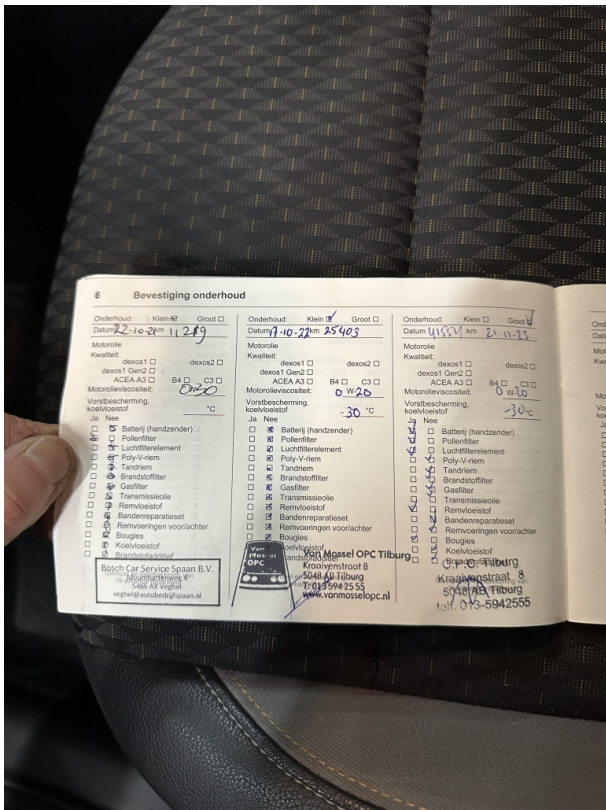 6 Bevestiging onderhoud
Onderhoud: Klein ☒ Groot ☐
Datum 22-10-21 km 11289
Motorolie
Kwaliteit:
dexos1 ☐ dexos2 ☐
dexos1 Gen2 ☐
ACEA A3 ☐ B4 ☐ C3 ☐
Motorolieviscositeit: 0w20
Vorstbescherming,
koelvloeistof °C
Ja Nee
Batterij (handzender)
Pollenfilter
Luchtfilterelement
Poly-V-riem
Tandriem
Brandstoffilter
Gasfilter
Transmissieolie
Remvloeistof
Bandenreparatieset
Remvoeringen voor/achter
Bougies
Koelvloeistof
Brandstofadditief
Bosch Car Service Spaan B.V.
Mountbattenweg 4
5466 AX Veghel
veghel@autobedrijfspaan.nl
Onderhoud: Klein ☒ Groot ☐
Datum 17-10-22 km 25403
Motorolie
Kwaliteit:
dexos1 ☐ dexos2 ☐
dexos1 Gen2 ☐
ACEA A3 ☐ B4 ☐ C3 ☐
Motorolieviscositeit: 0 W-20
Vorstbescherming,
koelvloeistof -30 °C
Ja Nee
Batterij (handzender)
Pollenfilter
Luchtfilterelement
Poly-V-riem
Tandriem
Brandstoffilter
Gasfilter
Transmissieolie
Remvloeistof
Bandenreparatieset
Remvoeringen voor/achter
Bougies
Koelvloeistof
Brandstofadditief
Van Mossel OPC
Van Mossel OPC Tilburg
Kraaivenstraat 8
5048 AB Tilburg
T: 013 594 25 55
www.vanmosselopc.nl
Onderhoud: Klein ☐ Groot ☑
Datum 41554 km 21-11-23
Motorolie
Kwaliteit:
dexos1 ☐ dexos2 ☐
dexos1 Gen2 ☐
ACEA A3 ☐ B4 ☐ C3 ☐
Motorolieviscositeit: 0 W-20
Vorstbescherming,
koelvloeistof -30 °C
Ja Nee
Batterij (handzender)
Pollenfilter
Luchtfilterelement
Poly-V-riem
Tandriem
Brandstoffilter
Gasfilter
Transmissieolie
Remvloeistof
Bandenreparatieset
Remvoeringen voor/achter
Bougies
Koelvloeistof
Brandstofadditief
O.P.C. Tilburg
Kraaivenstraat 8
5048 AB Tilburg
telf. 013-5942555